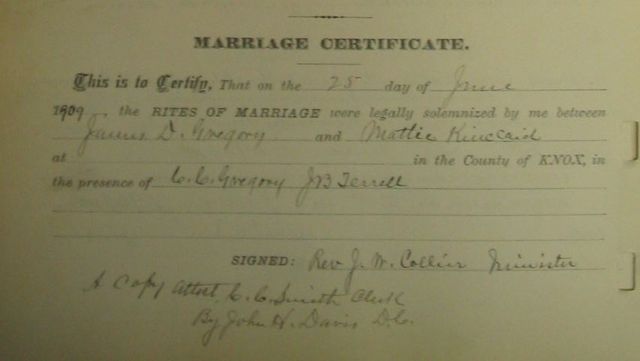 MARRIAGE CERTIFICATE.
This is to Certify, That on the 25 day of June
1909, the RITES OF MARRIAGE were legally solemnized by me between
James D. Gregory and Mattie Kinccaid
at in the County of KNOX, in
the presence of C. C. Gregory J B Terrell
SIGNED: Rev J. W. Collier Minister
A Copy Attest. C. C. Smith Clerk
By John H. Davis D.C.